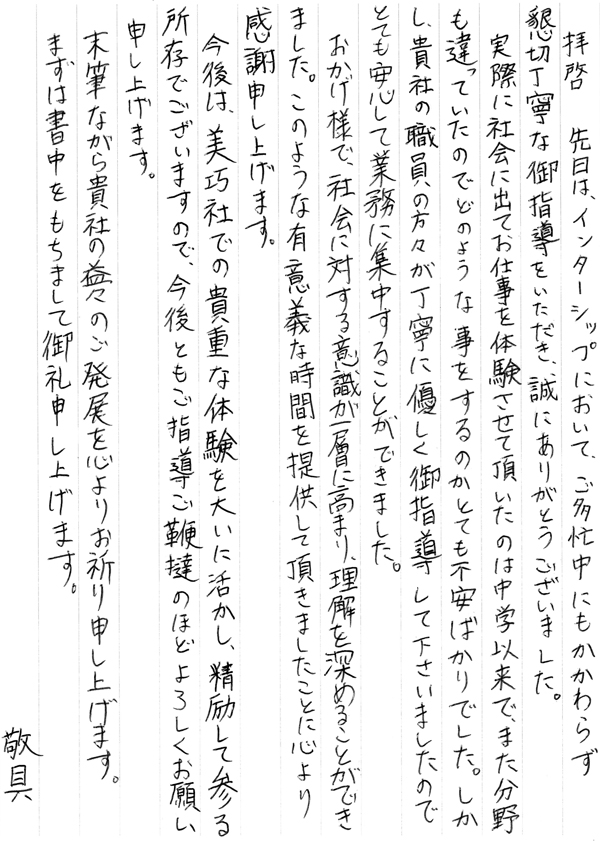 拝啓　先日は、インターシップにおいて、ご多忙中にもかかわらず
懇切丁寧な御指導をいただき、誠にありがとうございました。
実際に社会に出てお仕事を体験させて頂いたのは中学以来で、また分野
も違っていたのでどのような事をするのかとても不安ばかりでした。しか
し、貴社の職員の方々が丁寧に優しく御指導して下さいましたので
とても安心して業務に集中することができました。
おかげ様で、社会に対する意識が一層に高まり、理解を深めることができ
ました。このような有意義な時間を提供して頂きましたことに心より
感謝申し上げます。
今後は、美巧社での貴重な体験を大いに活かし、精励して参る
所存でございますので、今後ともご指導ご鞭撻のほどよろしくお願い
申し上げます。
末筆ながら貴社の益々のご発展を心よりお祈り申し上げます。
まずは書中をもちまして御礼申し上げます。
敬具